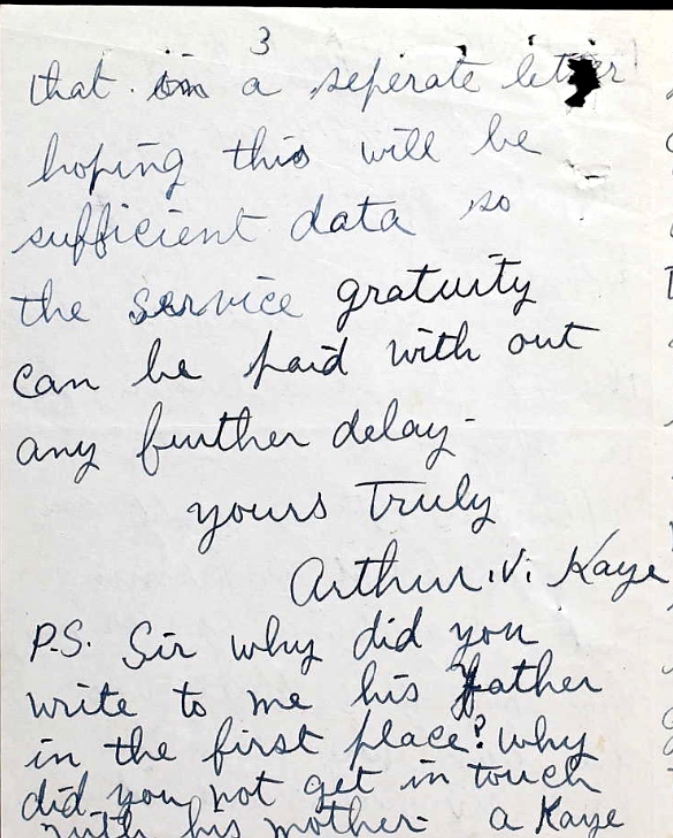 3
that in a seperate letter
hoping this will be
sufficient data so
the service gratuity
can be paid with out
any further delay-
yours truly
Arthur.V. Kaye
P.S. Sir why did you
write to me his father
in the first place? why
did you not get in touch
with his mother- a Kaye